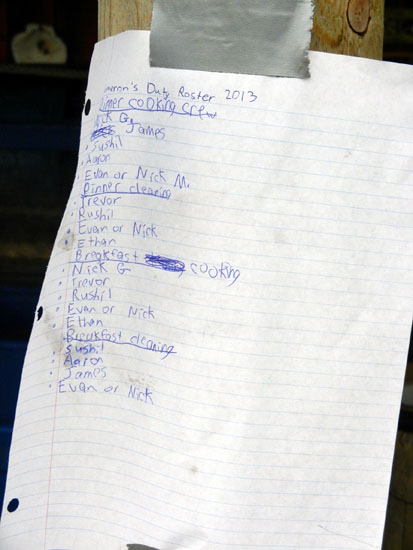 Duty Roster 2013
Dinner cooking crew
Nick G
James
Sushil
Aaron
Evan or Nick M.
Dinner cleaning
Trevor
Rushil
Evan or Nick
Ethan
Breakfast cooking
Nick G
Trevor
Rushil
Evan or Nick
Ethan
Breakfast cleaning
Sushil
Aaron
James
Evan or Nick